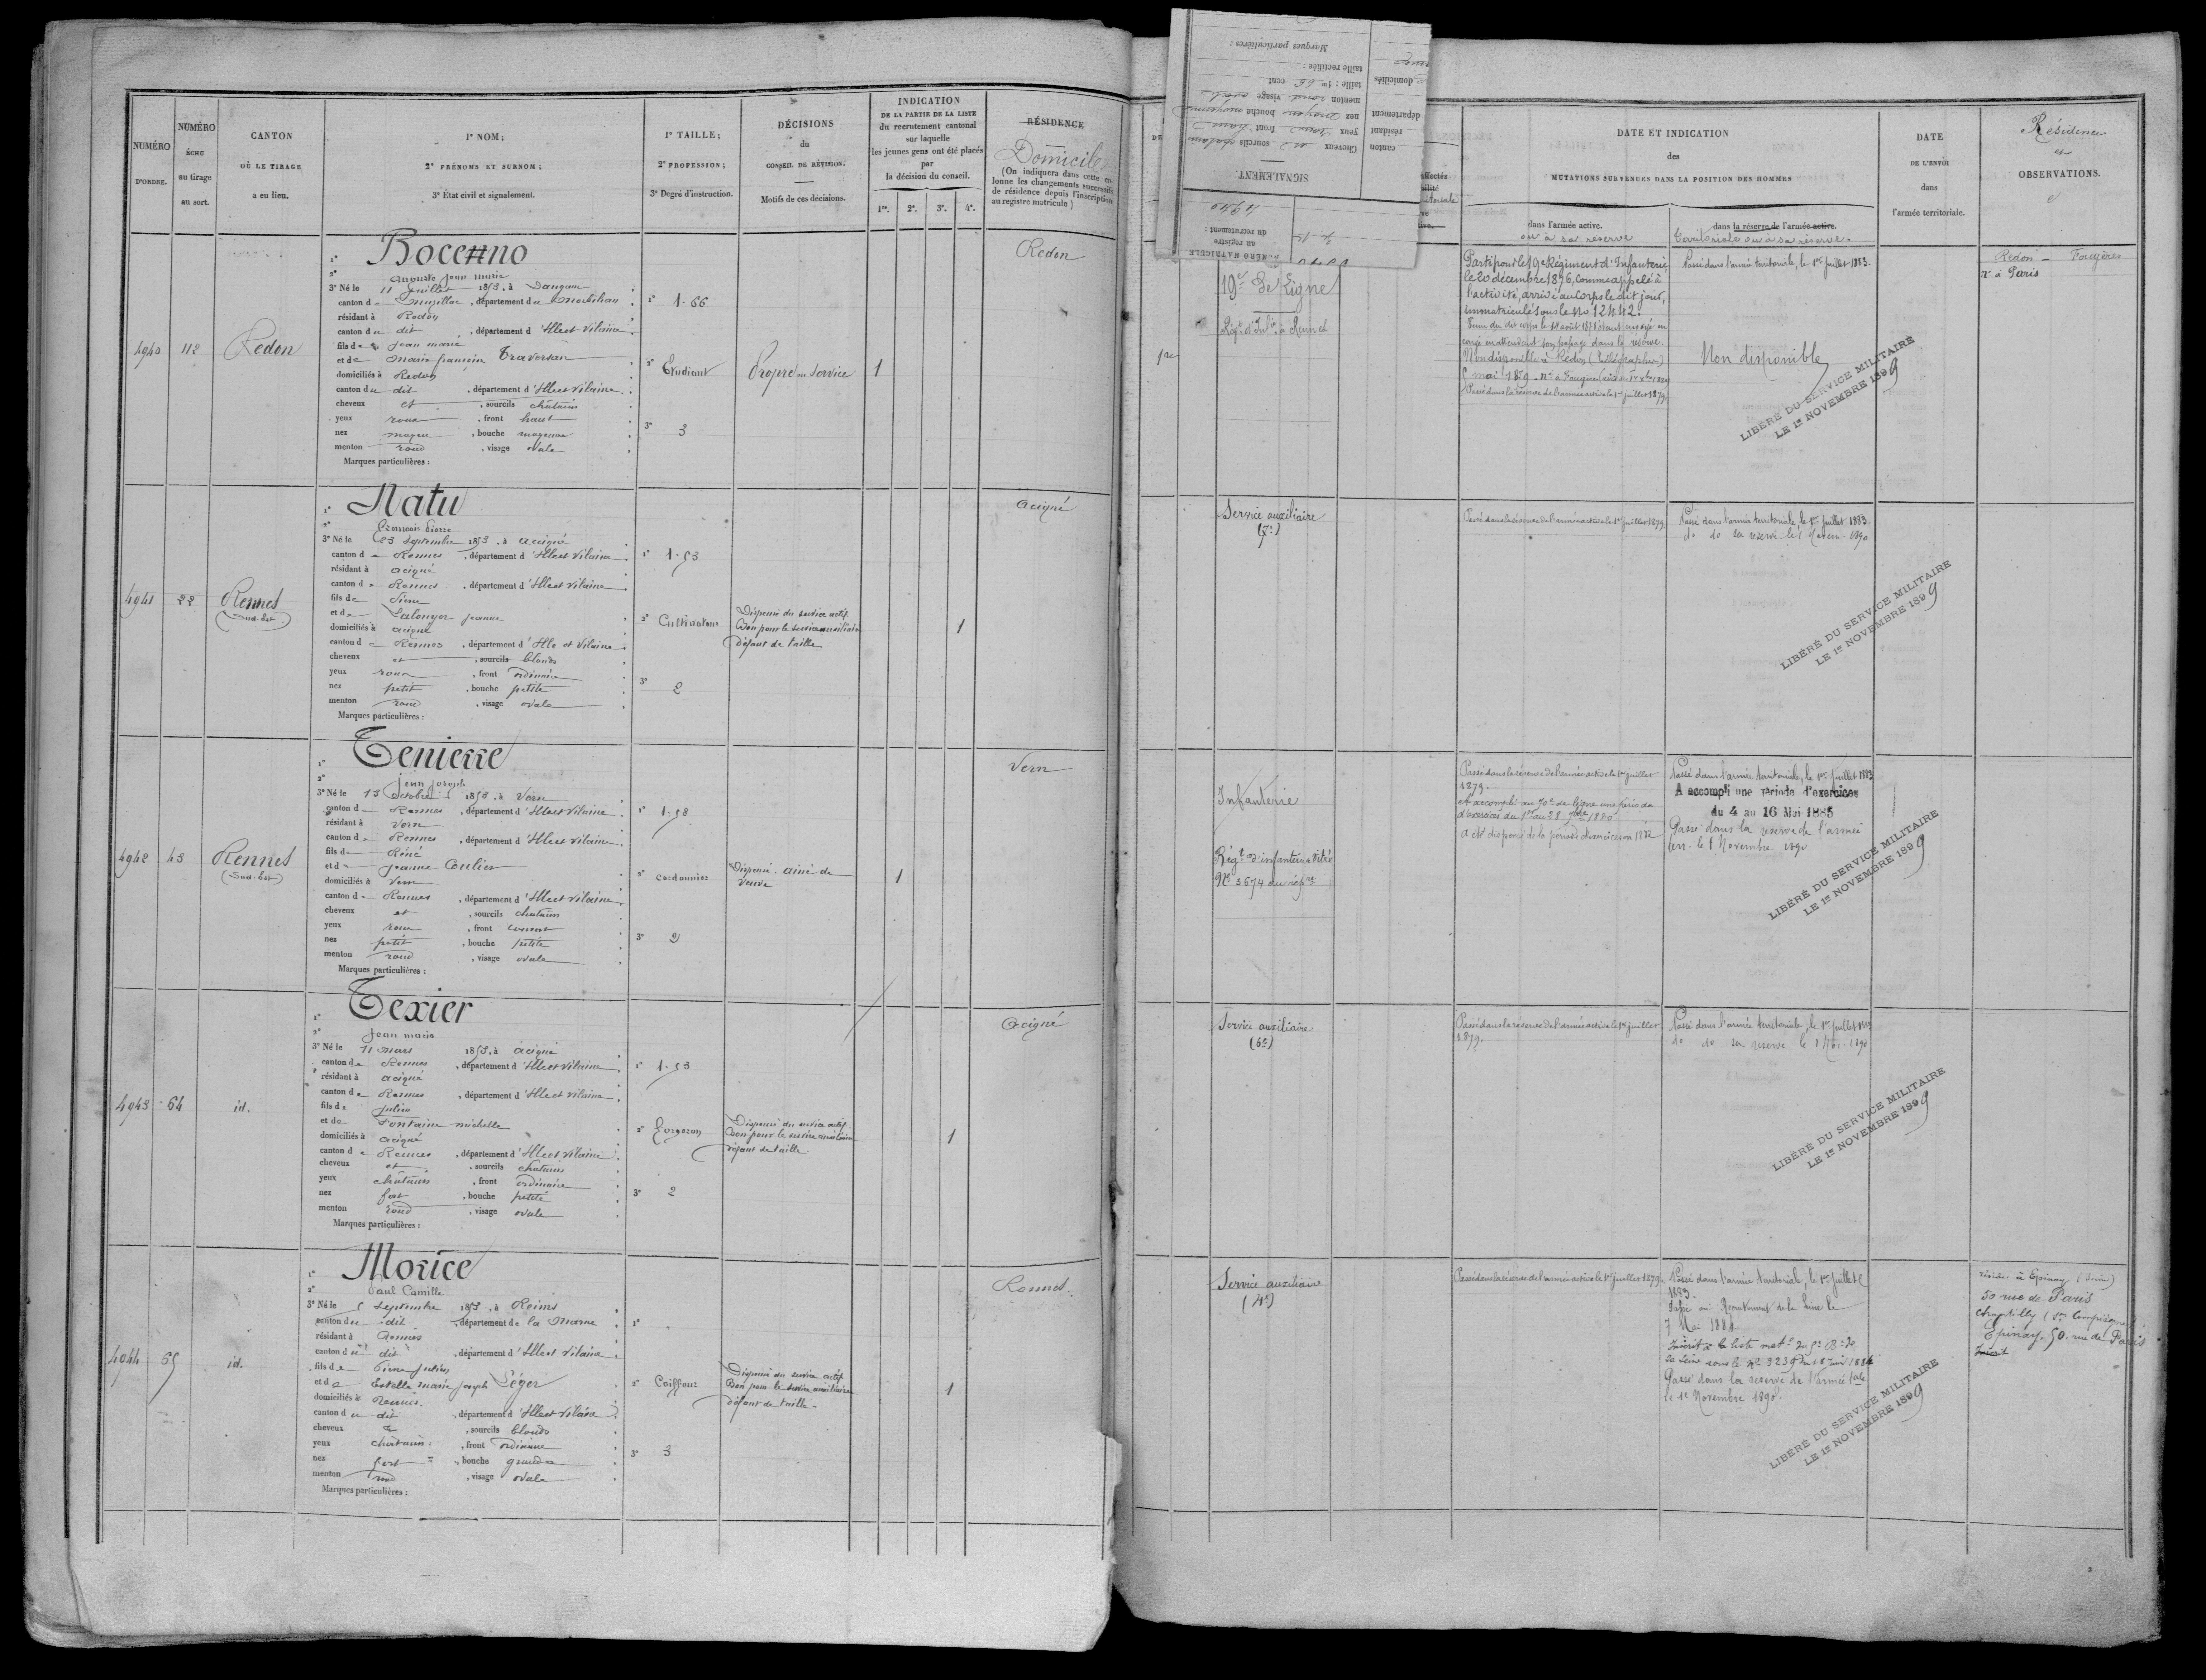 NUMÉRO
D'ORDRE.
NUMÉRO
ÉCHU
au tirage
au sort.
CANTON
OÙ LE TIRAGE
a eu lieu.
1° NOM;
2° PRÉNOMS ET SURNOM;
3° État civil et signalement.
1° TAILLE;
2° PROFESSION;
3° Degré d'instruction.
DÉCISIONS
du
CONSEIL DE RÉVISION.
Motifs de ces décisions.
INDICATION
DE LA PARTIE DE LA LISTE
du recrutement cantonal
sur laquelle
les jeunes gens ont été placés
par
la décision du conseil.
1re. 2e. 3e. 4e.
RÉSIDENCE
Domicile
(On indiquera dans cette co-
lonne les changements successifs
de résidence depuis l'inscription
au registre matricule)
4940 112 Redon
1° Bocenno
2° Auguste Jean marie
3° Né le 11 Juillet 1853, à
canton de Muzillac, département du Morbihan
résidant à Redon
canton du dit, département d'Ille et Vilaine
fils de Jean marie
et de Marie françoise Traversan
domiciliés à Redon
canton du dit, département d'Ille et Vilaine
cheveux et, sourcils châtains
yeux roux, front haut
nez moyen, bouche moyenne
menton rond, visage ovale
Marques particulières :
1° 1-66
2° Etudiant
3° 3
Propre au Service
1
Redon
4941 22 Rennes
Sud-Est
1° Natu
2° François Pierre
3° Né le 23 Septembre 1853, à Acigné
canton de Rennes, département d'Ille et Vilaine
résidant à Acigné
canton de Rennes, département d'Ille et Vilaine
fils de Pierre
et de Jeanne
domiciliés à Acigné
canton de Rennes, département d'Ille et Vilaine
cheveux et, sourcils blonds
yeux roux, front ordinaire
nez petit, bouche petite
menton rond, visage ovale
Marques particulières :
1° 1-53
2° Cultivateur
3° 2
Dispensé du service actif
Bon pour le service auxiliaire
défaut de taille
1
Acigné
4942 43 Rennes
(Sud-Est)
1° Tenierre
2° Jean Joseph
3° Né le 13 Octobre 1853, à Vern
canton de Rennes, département d'Ille et Vilaine
résidant à Vern
canton de Rennes, département d'Ille et Vilaine
fils de Réné
et de Jeanne Coulier
domiciliés à Vern
canton de Rennes, département d'Ille et Vilaine
cheveux et, sourcils chatains
yeux roux, front couvert
nez petit, bouche petite
menton rond, visage ovale
Marques particulières :
1° 1-58
2° Cordonnier
3° 2
Dispensé. ainé de
veuve
1
Vern
4943 64 id.
1° Texier
2° Jean marie
3° Né le 11 mars 1853, à Acigné
canton de Rennes, département d'Ille et Vilaine
résidant à Acigné
canton de Rennes, département d'Ille et Vilaine
fils de Julien
et de Fontaine michelle
domiciliés à Acigné
canton de Rennes, département d'Ille et Vilaine
cheveux et, sourcils chatains
yeux châtains, front ordinaire
nez fort, bouche petite
menton rond, visage ovale
Marques particulières :
1° 1-53
2° Forgeron
3° 2
Dispensé du service actif
Bon pour le service auxiliaire
défaut de taille
1
Acigné
4944 65 id.
1° Morice
2° Paul Camille
3° Né le 5 Septembre 1853, à Reims
canton du dit, département de la Marne
résidant à Rennes
canton du dit, département d'Ille et Vilaine
fils de Pierre Julien
et de Estelle marie Joseph Léger
domiciliés à Rennes.
canton du dit, département d'Ille et Vilaine
cheveux &, sourcils blonds
yeux châtains, front ordinaire
nez fort, bouche grande
menton rond, visage ovale
Marques particulières :
1°
2° Coiffeur
3° 3
Dispensé du service actif
Bon pour le service auxiliaire
défaut de taille
1
Rennes.
NUMÉRO MATRICULE
au registre
du recrutement :
4940
SIGNALEMENT.
Cheveux et sourcils chatains
yeux roux front haut
nez moyen bouche moyenne
menton rond visage ovale
taille : 1m 66 cent.
taille rectifiée :
Marques particulières :
canton
résidant
département
domiciliés
DATE ET INDICATION
des
MUTATIONS SURVENUES DANS LA POSITION DES HOMMES
dans l'armée active.
ou à sa réserve
dans la réserve de l'armée active.
Territoriale ou à sa réserve.
DATE
DE L'ENVOI
dans
l'armée territoriale.
Résidence
et
OBSERVATIONS.
1re
19e De Ligne
Régt d'Infie à Rennes
Parti pour le 19e Régiment d'Infanterie
le 20 décembre 1876, Comme appelé à
l'activité, arrivé au Corps le dit jour,
immatriculé sous le No 12442.
congé en attendant son passage dans la réserve
Non disponible à Redon
Passé dans la réserve de l'armée active le 1er juillet 1879
Passé dans l'armée territoriale, le 1er Juillet 1883.
Non disponible
LIBÉRÉ DU SERVICE MILITAIRE
LE 1er NOVEMBRE 1899
Redon - Fougères
à Paris
Service auxiliaire
(7e)
Passé dans la réserve de l'armée active le 1er juillet 1879
Passé dans l'armée territoriale, le 1er Juillet 1883.
do do sa réserve le 1 Novem. 1890
LIBÉRÉ DU SERVICE MILITAIRE
LE 1er NOVEMBRE 1899
Infanterie
Régt d'infanterie Vitré
No 3674 du répre
Passé dans la réserve de l'armée active le 1er juillet
1879.
A accompli au 70e de ligne une période
d'exercices du 1er au 28 7bre 1880
A été dispensé de la période d'exercices en 1882
Passé dans l'armée territoriale, le 1er Juillet 1883
A accompli une période d'exercices
du 4 au 16 Mai 1885
Passé dans la réserve de l'armée
terr. le 1 Novembre 1890
LIBÉRÉ DU SERVICE MILITAIRE
LE 1er NOVEMBRE 1899
Service auxiliaire
(6e)
Passé dans la réserve de l'armée active le 1er juillet
1879.
Passé dans l'armée territoriale, le 1er Juillet 1883
do do sa réserve le 1 Nov. 1890
LIBÉRÉ DU SERVICE MILITAIRE
LE 1er NOVEMBRE 1899
Service auxiliaire
(4e)
Passé dans la réserve de l'armée active le 1er juillet 1879.
Passé dans l'armée territoriale, le 1er Juillet
1883.
Passé au Recrutement de la Seine le
7 Mai 1884
la Seine sous le No 3239 du 18 Juin 1884
Passé dans la réserve de l'armée tale
le 1er Novembre 1890.
LIBÉRÉ DU SERVICE MILITAIRE
LE 1er NOVEMBRE 1899
réside à Epinay (Seine)
50 rue de Paris
Chantilly
Epinay, 50. rue de Paris